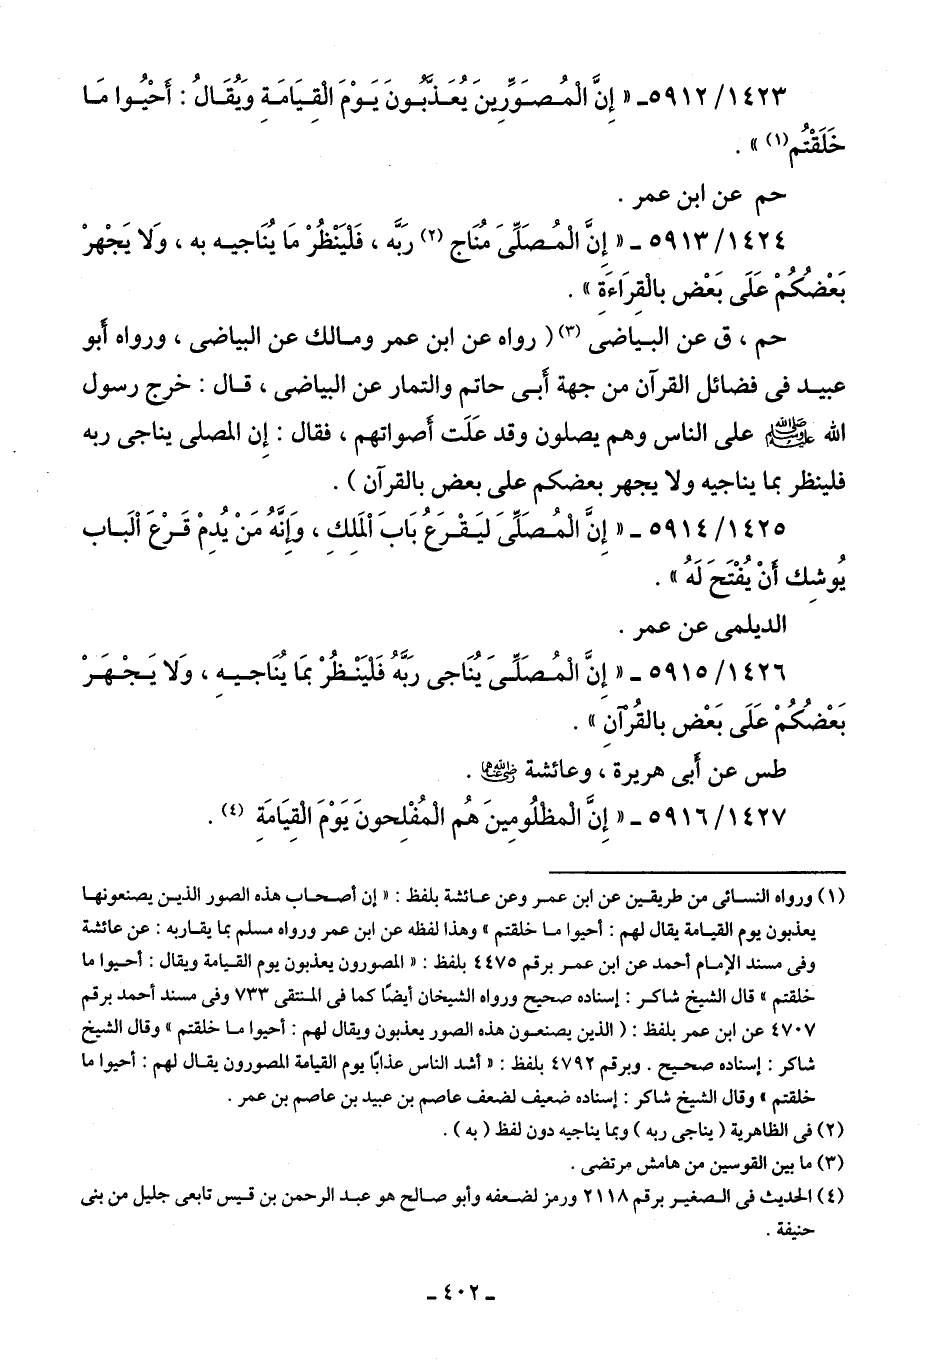 ٥٩١٢/١٤٢٣ـ « إِنَّ الْمُصَوِّرِينَ يُعَذَّبُونَ يَوْمَ الْقِيَامَةِ وَيُقَالُ : أَحْيُوا مَا
خَلَقْتُم (١) » .
حم عن ابن عمر .
٥٩١٣/١٤٢٤ ـ « إِنَّ الْمُصَلِّىَ مُنَاجٍ (٢) رَبَّه ، فَلْيَنْظُرْ مَا يُنَاجِيه به ، وَلَا يَجْهَرْ
بَعْضُكُمْ عَلَى بَعْضٍ بالْقِرَاءَةِ » .
حم ، ق عن البياضى (٣) ( رواه عن ابن عمر ومالك عن البياضى ، ورواه أبو
عبيد فى فضائل القرآن من جهة أبى حاتم والتمار عن البياضى ، قال : خرج رسول
الله ﷺ على الناس وهم يصلون وقد علَت أصواتهم ، فقال : إن المصلى يناجى ربه
فلينظر بما يناجيه ولا يجهر بعضكم على بعض بالقرآن ) .
٥٩١٤/١٤٢٥ ـ « إِنَّ الْمُصَلِّىَ لَيَقْرَعُ بَابَ الْمَلِكِ ، وَإِنَّهُ مَنْ يُدِمْ قَرْعَ الْبَاب
يُوشِك أَنْ يُفْتَحَ لَهُ » .
الديلمى عن عمر .
٥٩١٥/١٤٢٦ ـ « إِنَّ الْمُصَلِّىَ يُنَاجِى رَبَّهُ فَلْيَنْظُرْ بمَا يُنَاجِيهِ ، وَلَا يَجْهَرْ
بَعْضُكُمْ عَلَى بَعْضٍ بالقُرْآنِ » .
طس عن أبى هريرة ، وعائشة رضي الله عنهما .
٥٩١٦/١٤٢٧ ـ « إِنَّ الْمظْلُومِينَ هُم الْمُفْلِحونَ يَوْمَ القِيَامَةِ (٤) .
(١) ورواه النسائى من طريقين عن ابن عمر وعن عائشة بلفظ : « إن أصحاب هذه الصور الذين يصنعونها
يعذبون يوم القيامة يقال لهم : أحيوا ما خلقتم » وهذا لفظه عن ابن عمر ورواه مسلم بما يقاربه : عن عائشة
وفى مسند الإمام أحمد عن ابن عمر برقم ٤٤٧٥ بلفظ : « المصورون يعذبون يوم القيامة ويقال : أحيوا ما
خلقتم » قال الشيخ شاكر : إسناده صحيح ورواه الشيخان أيضًا كما فى المنتقى ٧٣٣ وفى مسند أحمد برقم
٤٧٠٧ عن ابن عمر بلفظ : ( الذين يصنعون هذه الصور يعذبون ويقال لهم : أحيوا ما خلقتم » وقال الشيخ
شاكر : إسناده صحيح . وبرقم ٤٧٩٢ بلفظ : « أشد الناس عذابًا يوم القيامة المصورون يقال لهم : أحيوا ما
خلقتم » وقال الشيخ شاكر : إسناده ضعيف لضعف عاصم بن عبيد بن عاصم بن عمر .
(٢) فى الظاهرية ( يناجى ربه ) وبما يناجيه دون لفظ ( به ) .
(٣) ما بين القوسين من هامش مرتضى .
(٤) الحديث فى الصغير برقم ٢١١٨ ورمز لضعفه وأبو صالح هو عبد الرحمن بن قيس تابعى جليل من بنى
حنيفة .
ـ ٤٠٢ ـ